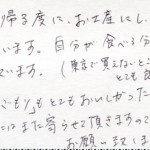 帰る度に、お土産にし
います。自分が食べる分
ています。(東京で買えないところ
とても
ごもり」もとてもおいしかった
にはまた寄らせて頂きますので
お願い致しま